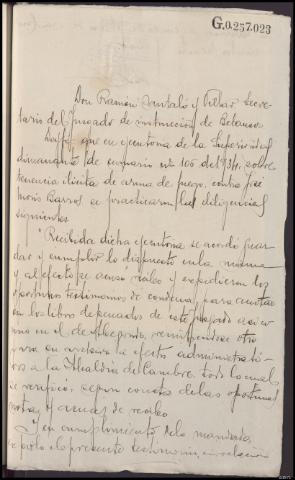 G.0.257.023
Don Ramón Santaló y Villar Secre-
tario del Juzgado de instrucción de Betanzos
Doy fe: que en ejecutoria de la Superioridad
dimanante de sumario nº 106 del 934, sobre
tenencia ilicita de arma de fuego, contra José
Barros se practicaron las diligencias
siguientes
"Recibida dicha ejecutoria se acordó guar-
dar y cumplir lo dispuesto en la misma
y al efecto se acusó recibo y expidieron los
oportunos testimonios de condena, para anotar
en los libros de penados de este Juzgado así co-
mo en el de , remitiendose otro
para su a efecto administrati-
vos a la Alcaldia de Cambre, todo lo cual
se verificó, segun consta de las oportunas
notas y acuses de recibo
Y en cumplimiento de lo mandado,
expido el presente testimonio, en relación